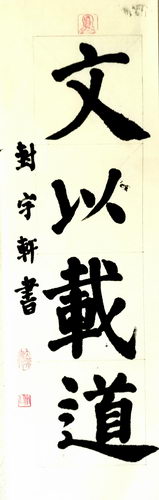 文以載道
封宇軒書